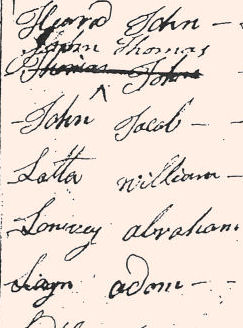 Heard John -
John Thomas
Thomas John
^
John Jacob -
Latta William -
Lowrey abraham
Liagn adom - -